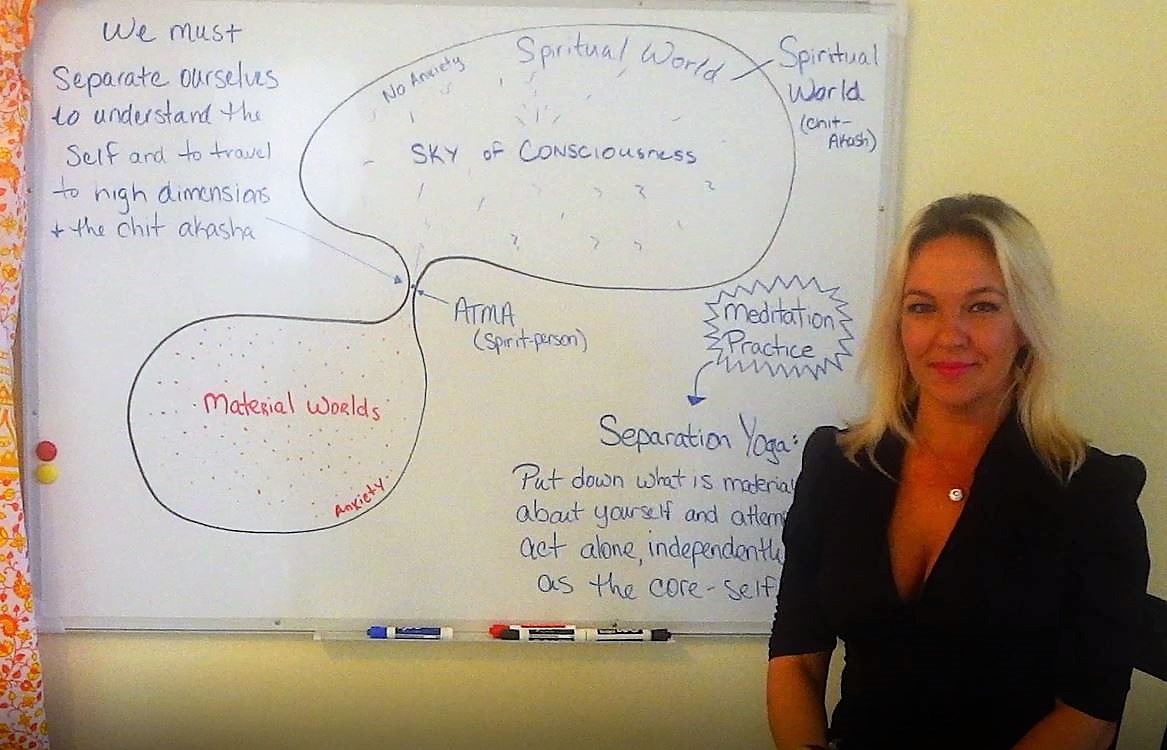 We must
Separate ourselves
to understand the
Self and to travel
to high dimensions
+ the chit akasha
No Anxiety
Spiritual World
SKY of CONSCIOUSNESS
Spiritual
World
(chit-
Akash)
ATMA
(Spirit-person)
Material Worlds
Anxiety
Meditation
Practice
Separation Yoga:
Put down what is material
about yourself and
act alone, independently
as the core-self